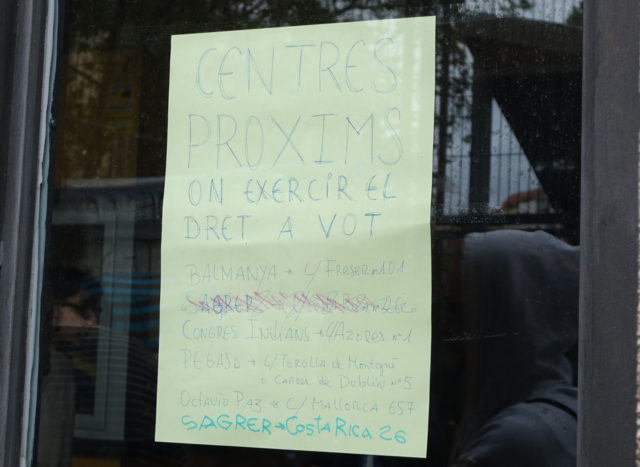 CENTRES
PROXIMS
ON EXERCIR EL
DRET A VOT
BALMANYA → C/ FRESER nº 101
SAGRER
CONGRES INDIANS → C/AZORES nº 1
PEGASO → C/ TOROLLA de Montgrí
o CARRER de DUBLIN nº 5
OCTAVIO PAZ → C/ MALLORCA 657
SAGRER → COSTA RICA 26